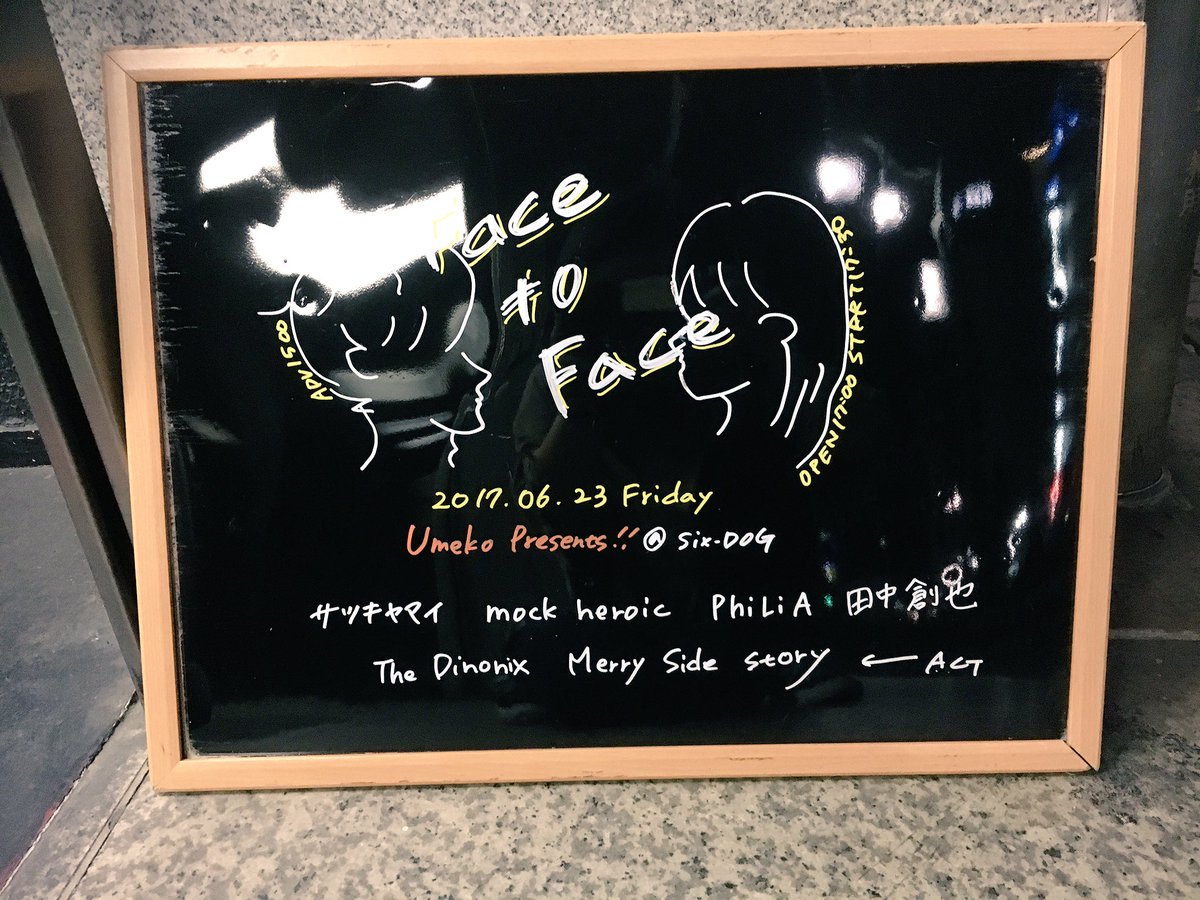 Face
to
Face
ADV 1500
OPEN 17:00 START 17:30
2017.06.23 Friday
Umeko Presents!! @ Six-DOG
サツキヤマイ mock heroic PhiLiA 田中創也
The Dinonix Merry Side story ← ACT